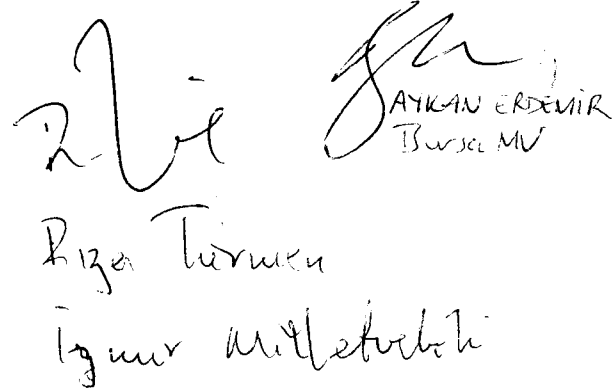 AYKAN ERDEMİR
Bursa MV
Rıza Türmen
İzmir Milletvekili